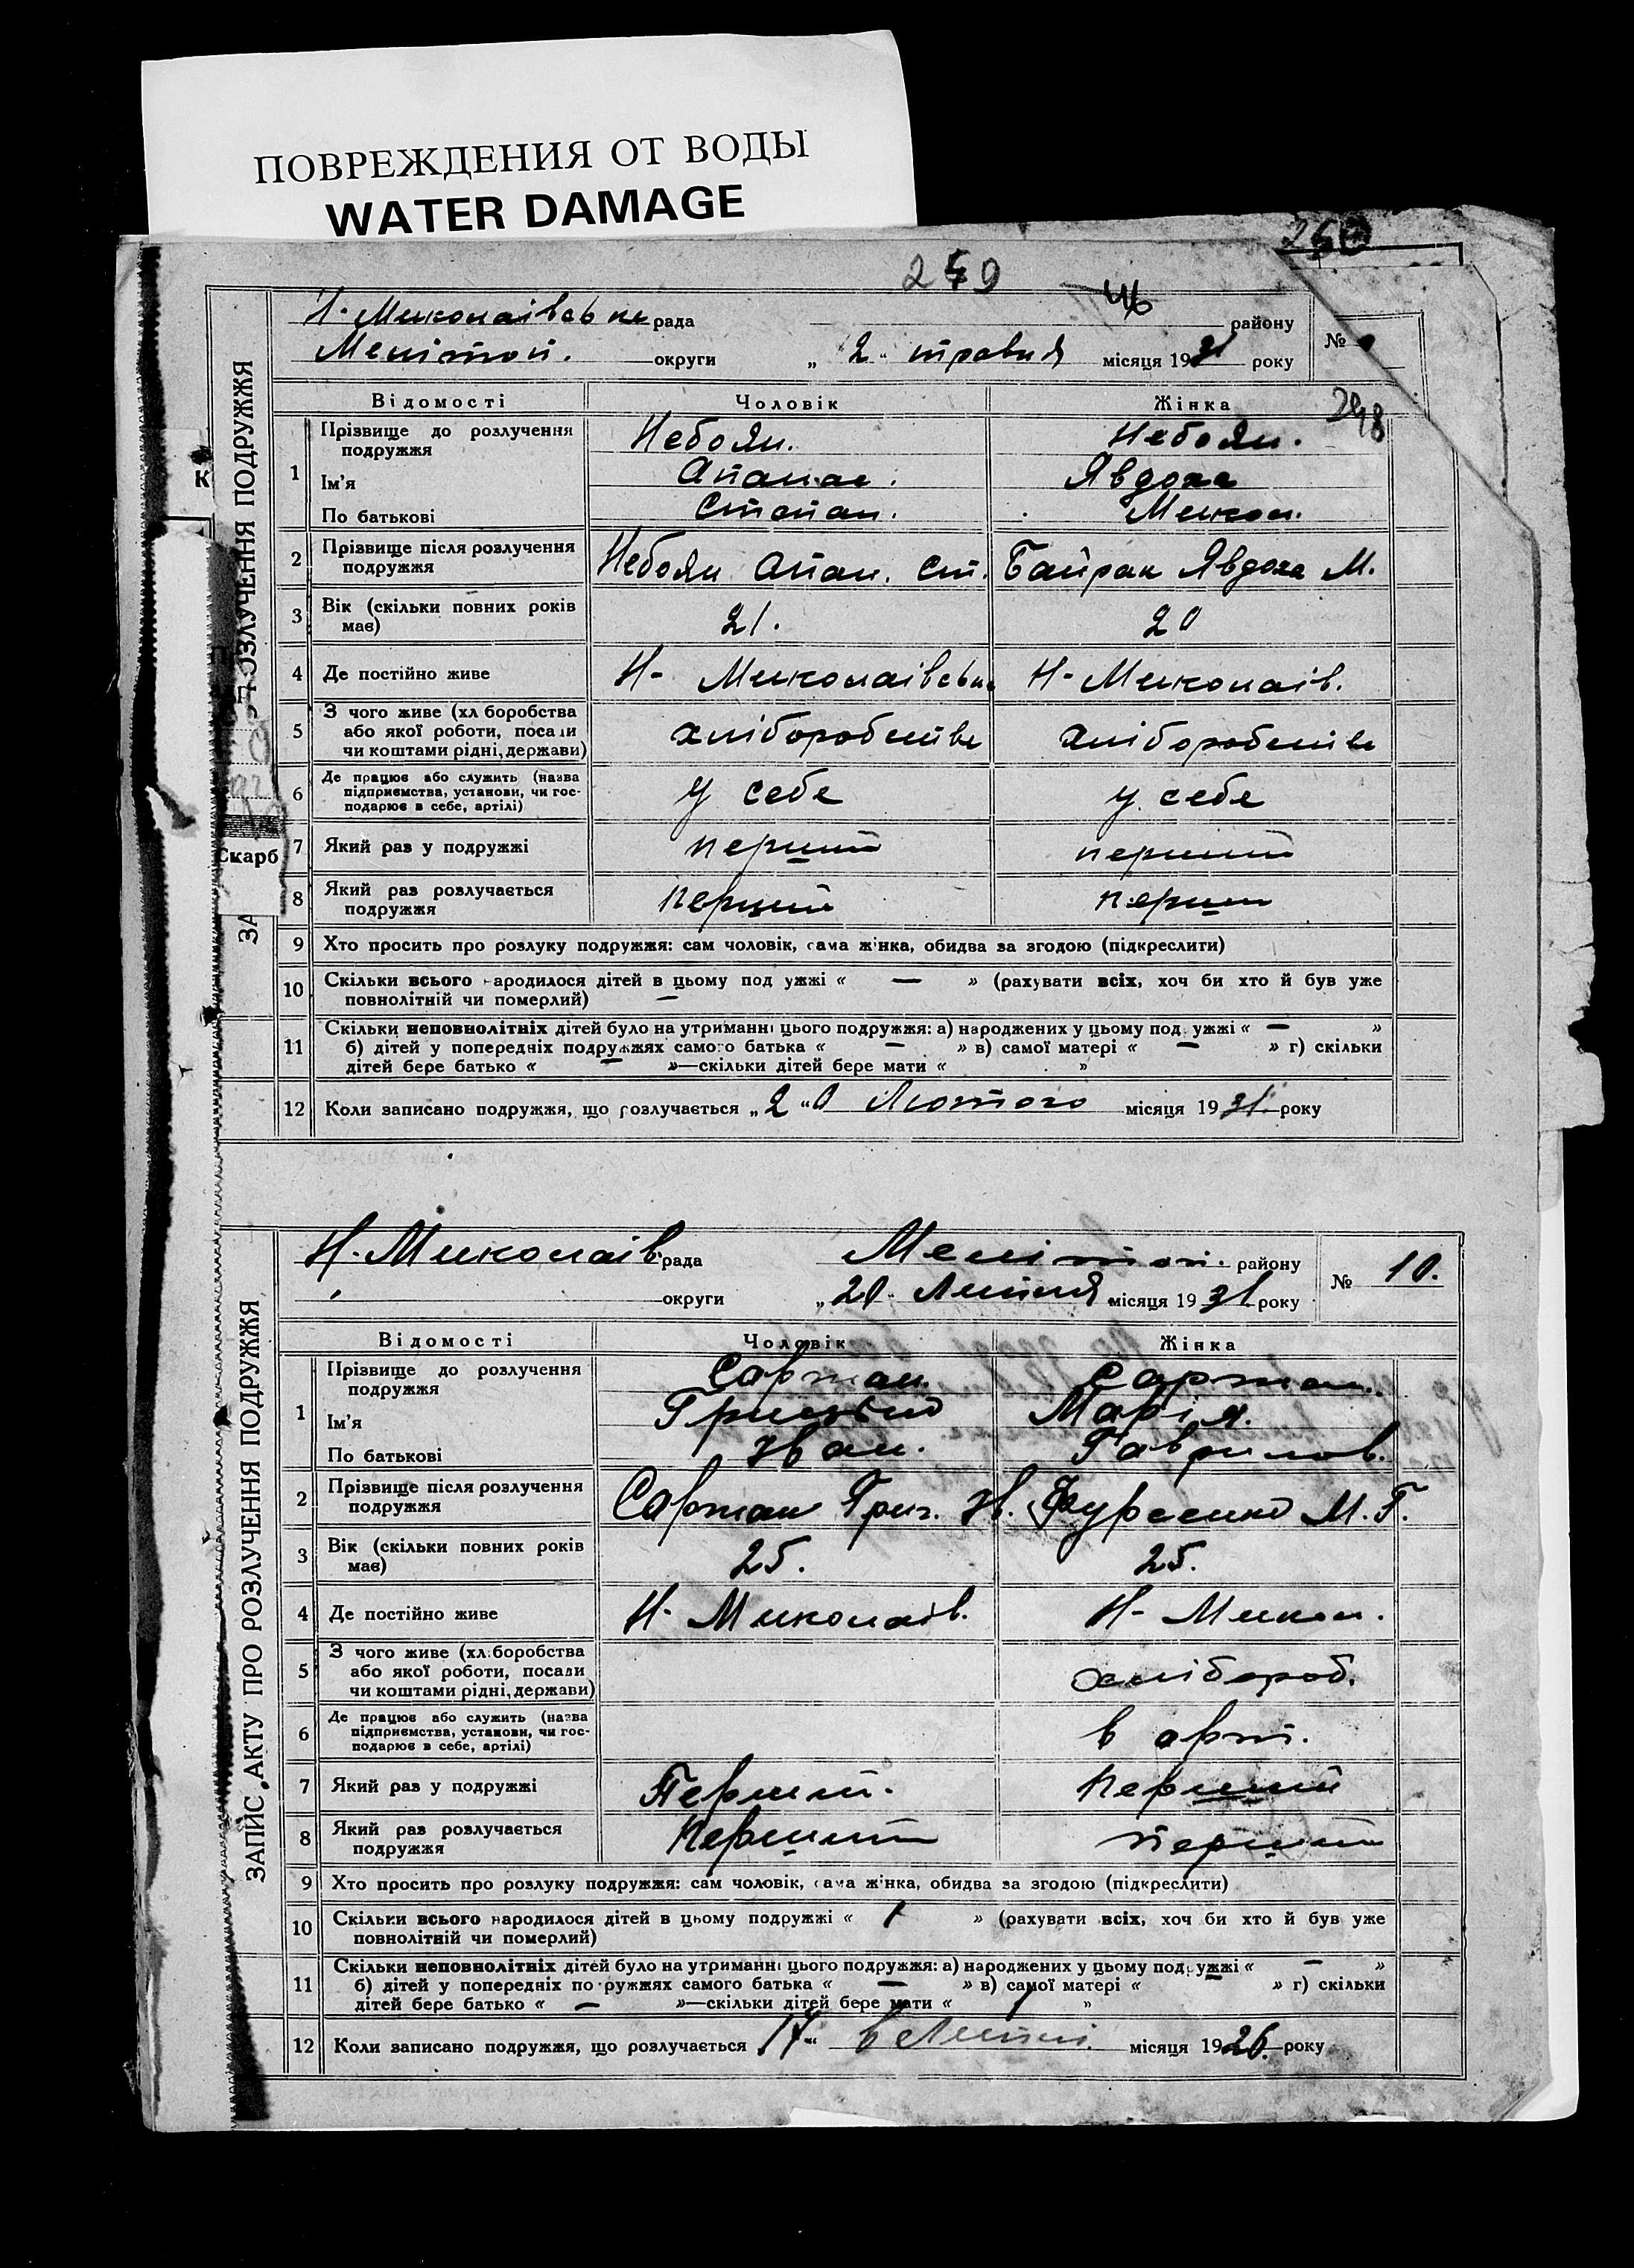 ПОВРЕЖДЕНИЯ ОТ ВОДЫ
WATER DAMAGE
249
248
ЗАПИС АКТУ ПРО РОЗЛУЧЕННЯ ПОДРУЖЖЯ
Н. Миколаівське рада району
Мелітоп. округи „ 2 „ травня місяця 1931 року №
Відомості Чоловік Жінка
1 Прізвище до розлучення подружжя Небоян. Небоян.
Ім'я Апанас. Явдоха
По батькові Степан. Микол.
2 Прізвище після розлучення подружжя Небоян Апан. Ст. Байрак Явдоха М.
3 Вік (скільки повних років має) 21. 20
4 Де постійно живе Н- Миколаівська Н- Миколаів.
5 З чого живе (хл боробства або якої роботи, посади чи коштами рідні, держави) хліборобство хліборобство
6 Де працює або служить (назва підприємства, установи, чи господарює в себе, артілі) у себе у себе
7 Який раз у подружжі перший перший
8 Який раз розлучається подружжя перший перший
9 Хто просить про розлуку подружжя: сам чоловік, сама жінка, обидва за згодою (підкреслити)
10 Скільки всього народилося дітей в цьому под ужжі « — » (рахувати всіх, хоч би хто й був уже
повнолітній чи померлий) —
11 Скільки неповнолітніх дітей було на утриманні цього подружжя: а) народжених у цьому под ужжі « — »
б) дітей у попередніх подружжях самого батька « — » в) самої матері « — » г) скільки
дітей бере батько « — »—скільки дітей бере мати « »
12 Коли записано подружжя, що розлучається „ 20 Лютого місяця 1931 року
Скарб
ЗАПИС АКТУ ПРО РОЗЛУЧЕННЯ ПОДРУЖЖЯ
Н. Миколаів. рада Мелітоп. району № 10.
округи „ 20 „ Липня місяця 1931 року
Відомості Чоловік Жінка
1 Прізвище до розлучення подружжя Сарман. Сарман.
Ім'я Грицько Марія.
По батькові Іван. Гаврилов.
2 Прізвище після розлучення подружжя Сарман Григ. Ів. Фурсенко М. Г.
3 Вік (скільки повних років має) 25. 25.
4 Де постійно живе Н- Миколаів. Н- Микол.
5 З чого живе (хл.боробства або якої роботи, посади чи коштами рідні, держави) хлібороб.
6 Де працює або служить (назва підприємства, установи, чи господарює в себе, артілі) в арт.
7 Який раз у подружжі Перший. Перший
8 Який раз розлучається подружжя Перший перший
9 Хто просить про розлуку подружжя: сам чоловік, сама жінка, обидва за згодою (підкреслити)
10 Скільки всього народилося дітей в цьому подружжі « 1 » (рахувати всіх, хоч би хто й був уже
повнолітній чи померлий)
11 Скільки неповнолітніх дітей було на утриманні цього подружжя: а) народжених у цьому подружжі « — »
б) дітей у попередніх по ружжях самого батька « — » в) самої матері « » г) скільки
дітей бере батько « — »—скільки дітей бере мати « 1 »
12 Коли записано подружжя, що розлучається 17 „ в Липні місяця 1926 року